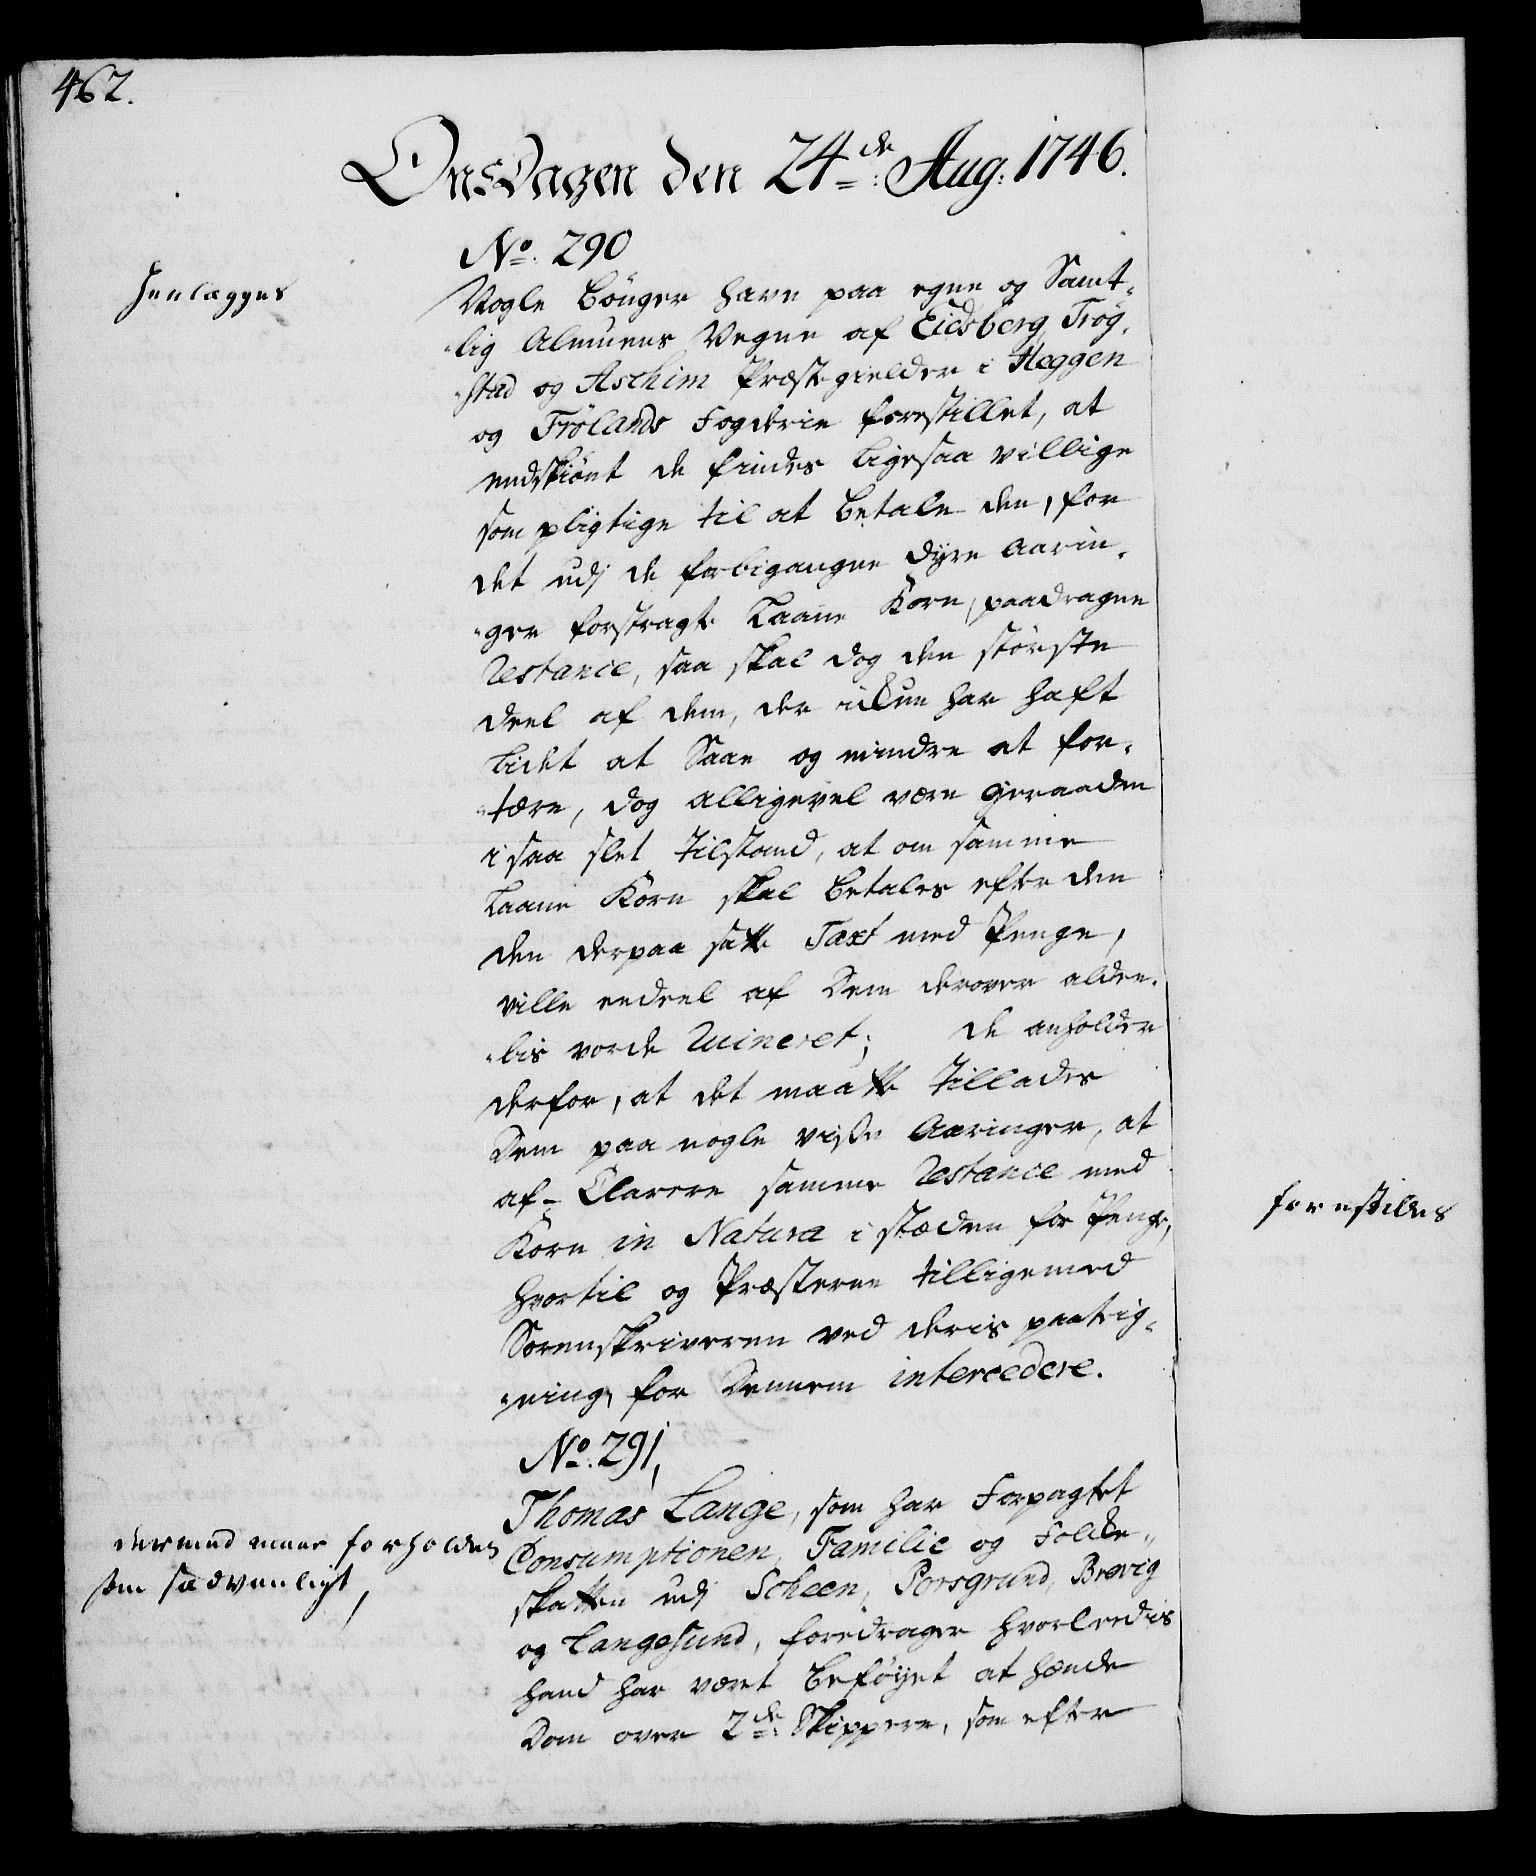 462.
Onsdagen den 24de Aug: 1746.
No. 290
Henlægges
Nogle Bønger have paa egne og Samt-
-lig Almuens Vegne af Eidsberg, Trög-
-stad og Aschim Præstegielder i Heggen
og Frölands Fogderie forestillet, at
endskiönt de findes ligesaa villige
som pligtige til at betale den, for
det udj de forbigangne dyre Aarin-
-ger forstragte Laane Korn, paadragne
Restance, saa skal dog den störste
deel af dem, der ickun har haft
lidet at Saae og mindre at for-
-tære, dog alligevel være geraaden
i saa slet tilstand, at om samme
Laane Korn skal betales efter den
den derpaa satte Taxt med Penge,
ville endeel af Dem derover alde-
-lis vorde Ruineret; de anholder
derfor, at det maatte tillades
Dem paa nogle visse Aaringer, at
af-Clarere samme Restance med
Korn in Natura i stæden for Penge,
forestilles
hvortil og Præsterne tilligemed
Sorenskriveren ved deris paateig-
-ning, for Dennem intercedere.
No. 291,
Thomas Lange, som har Forpagtet
dermed maae forholdes
Consumptionen, Familie og Folcke-
som sædvanligt,
skatten udj Scheen, Porsgrund, Brevig
og Langesund, foredrager hvorledis
hand har været beföyet at hænde
Dom over 2de Skippere, som efter